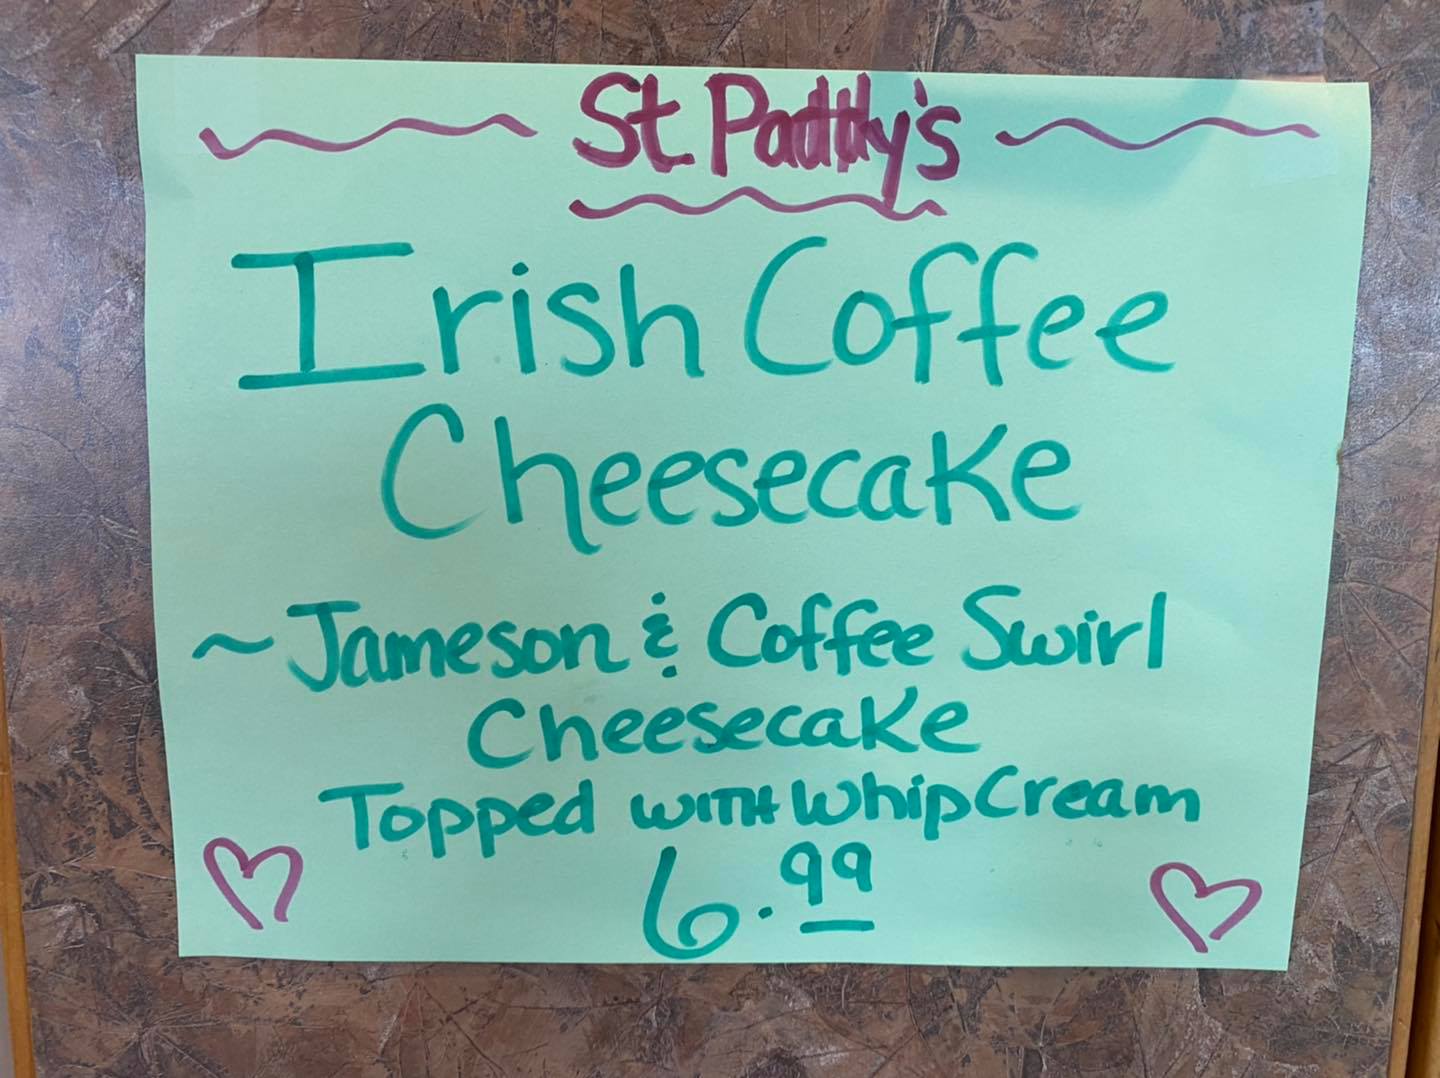 St. Paddy's
Irish Coffee
Cheesecake
~ Jameson & Coffee Swirl
Cheesecake
Topped with Whip Cream
6.99